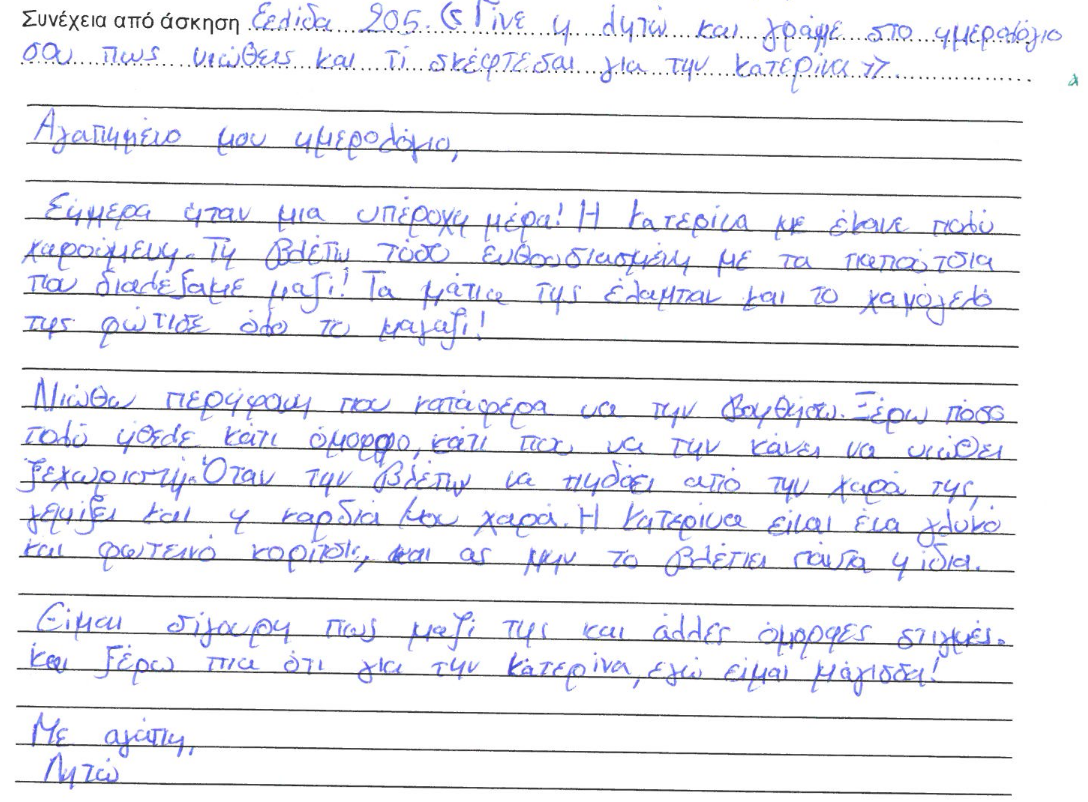 Συνέχεια από άσκηση Σελίδα 205. «Γίνε η Λητώ και γράψε στο ημερολόγιο
σου πως νιώθεις και τί σκέφτεσαι για την Κατερίνα».
Αγαπημένο μου ημερολόγιο,
Σήμερα ήταν μια υπέροχη μέρα! Η Κατερίνα με έκανε πολύ
χαρούμενη. Τη βλέπω τόσο ενθουσιασμένη με τα παπούτσια
που διαλέξαμε μαζί! Τα μάτια της έλαμπαν και το χαμόγελό
της φώτισε όλο το μαγαζί!
Νιώθω περήφανη που κατάφερα να την βοηθήσω. Ξέρω πόσο
πολύ ήθελε κάτι όμορφο, κάτι που να την κάνει να νιώθει
ξεχωριστή. Όταν την βλέπω να πηδάει από την χαρά της,
γεμίζει και η καρδιά μου χαρά. Η Κατερίνα είναι ένα γλυκό
και φωτεινό κορίτσι, και ας μην το βλέπει πάντα η ίδια.
Είμαι σίγουρη πως μαζί της και άλλες όμορφες στιγμές.
Και ξέρω πια ότι για την Κατερίνα, εγώ είμαι μάγισσα!
Με αγάπη,
Λητώ